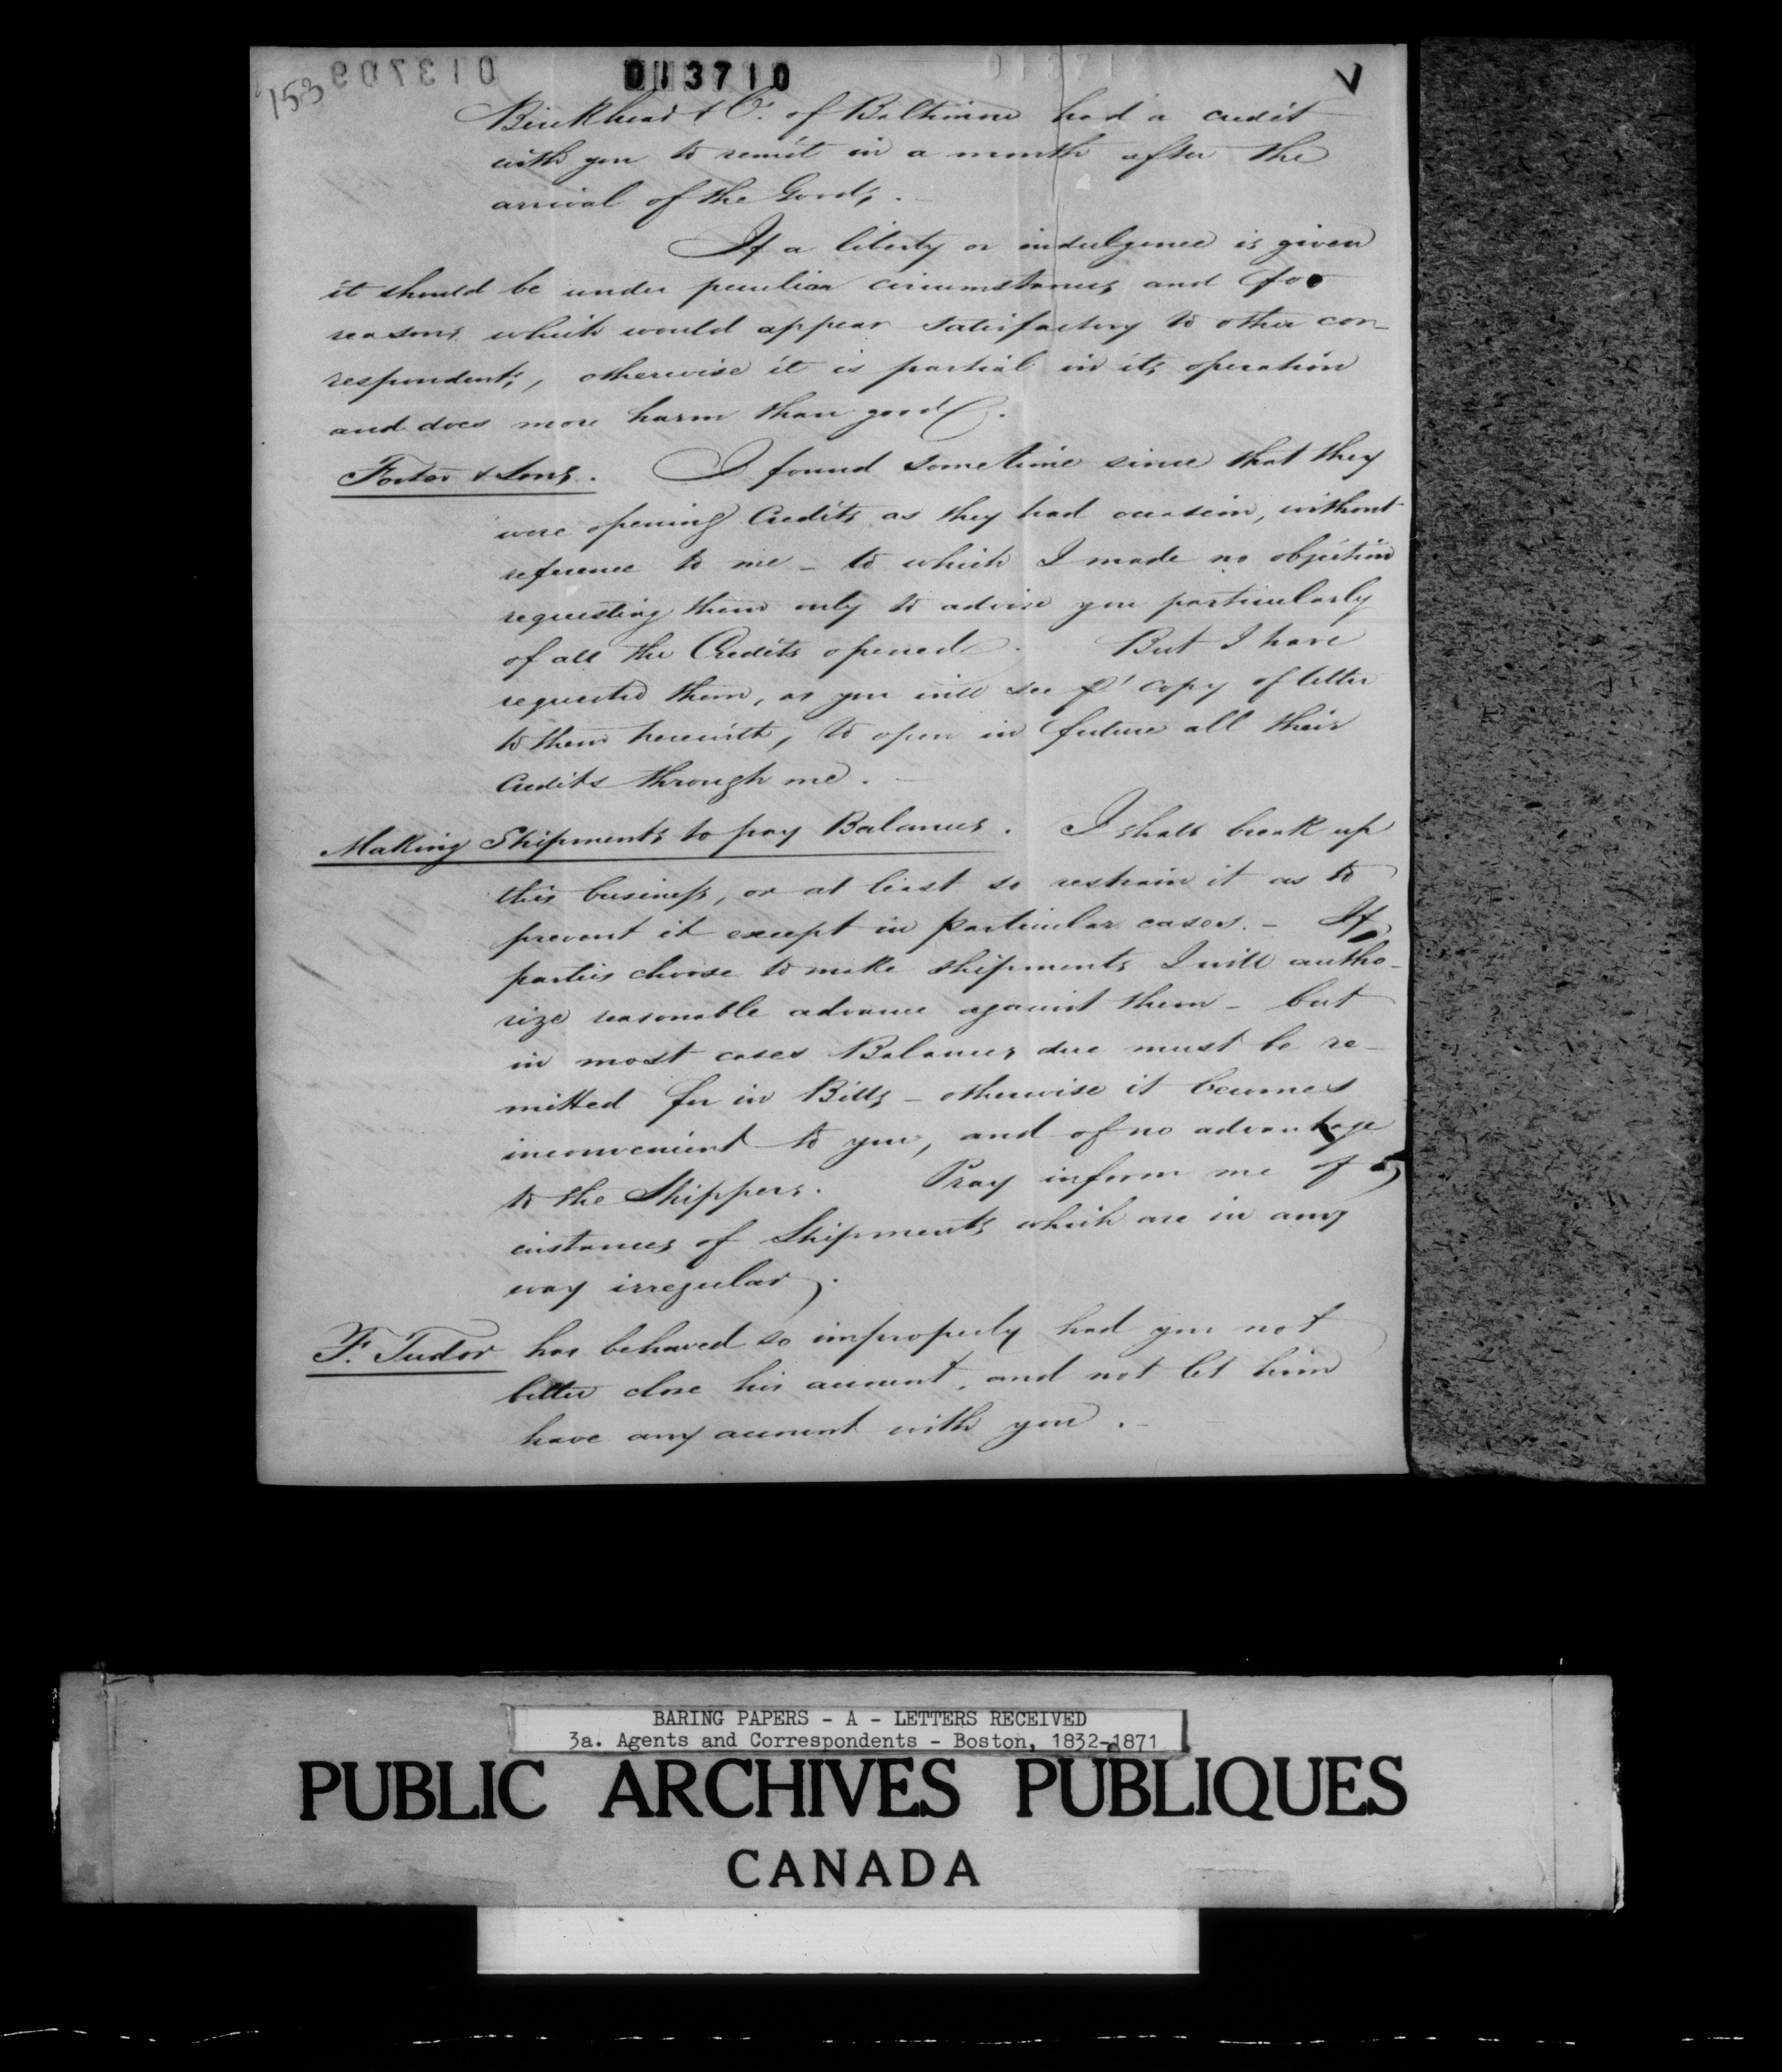 153
013710
Birckhead & Co. of Baltimore had a credit
with you to remit in a month after the
arrival of the Goods.
If a liberty or indulgence is given
it should be under peculiar circumstances and for
reasons which would appear satisfactory to other cor-
respondents, otherwise it is partial in its operation
and does more harm than good.
Foster & Sons. I found sometime since that they
were opening Credits as they had occasion, without
reference to me - to which I made no objection
requesting them only to advise you particularly
of all the Credits opened. But I have
requested them, as you will see pr copy of letter
to them herewith, to open in future all their
Credits through me.
Making Shipments to pay Balances. I shall break up
this business, or at least so restrain it as to
prevent it except in particular cases. - If
parties choose to make shipments I will autho-
rize reasonable advance against them - but
in most cases Balances due must be re-
mitted for in Bills - otherwise it becomes
inconvenient to you, and of no advantage
to the Shippers. Pray inform me of
instances of Shipments which are in any
way irregular.
F. Tudor has behaved so improperly had you not
better close his account, and not let him
have any account with you.
BARING PAPERS - A - LETTERS RECEIVED
3a. Agents and Correspondents - Boston, 1832-1871
PUBLIC ARCHIVES PUBLIQUES
CANADA